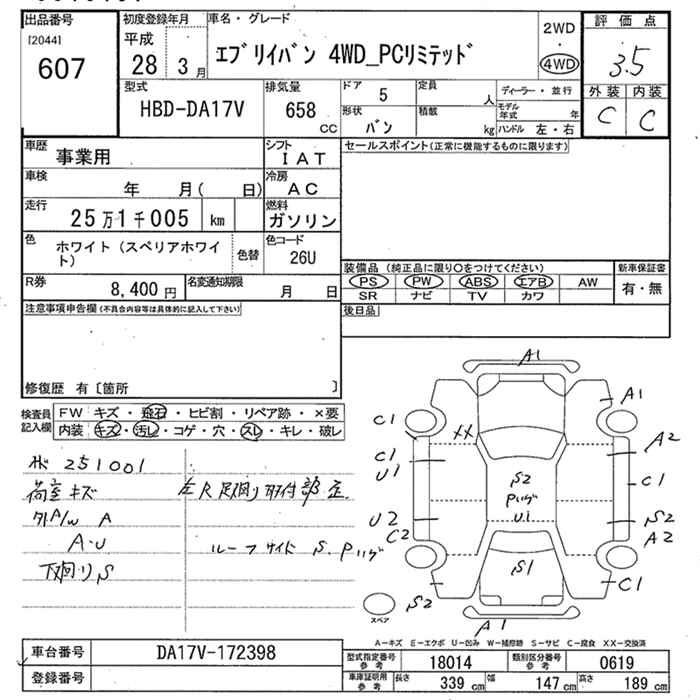 出品番号
[2044]
607
初度登録年月
平成
28 3月
車名・グレード
エブリイバン 4WD_PCリミテッド
2WD
・
4WD
評価点
3.5
外装 内装
C C
型式
HBD-DA17V
排気量
658
cc
ドア 5
形状 バン
定員 人
積載 kg
ディーラー・並行
モデル年式 年
ハンドル 左・右
車歴 事業用
シフト IAT
車検 年 月( 日)
冷房 AC
走行 25万1千005 km
燃料 ガソリン
色 ホワイト(スペリアホワイト)
色替
色コード 26U
R券 8,400円
名変通知期限 月 日
セールスポイント(正常に機能するものに限ります)
装備品(純正品に限り〇をつけてください)
PS PW ABS エアB AW
SR ナビ TV カワ
新車保証書
有・無
後日品
注意事項申告欄(不具合内容等は具体的に記入して下さい)
修復歴 有〔箇所 〕
検査員記入欄
FW キズ・飛石・ヒビ割・リペア跡・×要
内装 キズ・汚レ・コゲ・穴・スレ・キレ・破レ
251001
荷室キズ
外A/W A
A・U
下廻りS
左R足廻り取付部
ルーフサイド S. Pハゲ
A1
A1
C1
XX
A2
C1
U1
C1
S2
Pハゲ
U1
U2
C2
S2
A2
S1
C1
S2
A1
スペア
A-キズ E-エクボ U-凹み W-補修跡 S-サビ C-腐食 XX-交換済
車台番号 DA17V-172398
登録番号
型式指定番号参考 18014
類別区分番号参考 0619
車庫証明用参考 長さ 339cm 幅 147cm 高さ 189cm